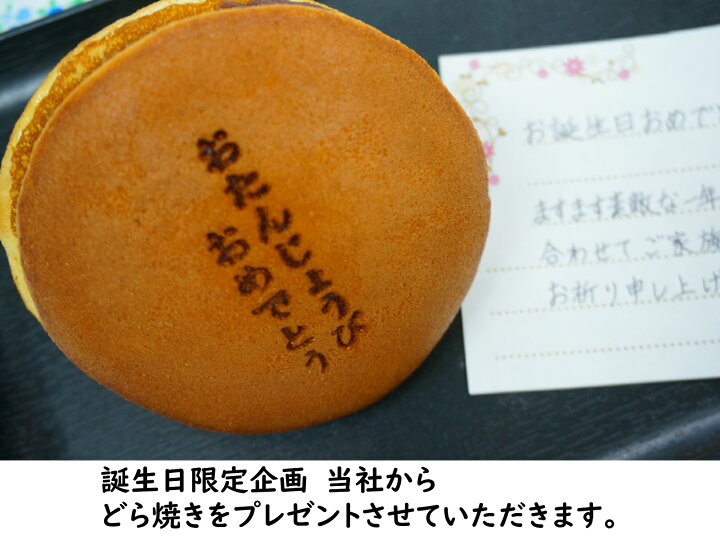 おたんじょうび
おめでとう
お誕生日おめで
ますます素敵な一年
合わせてご家族
お祈り申し上げ
誕生日限定企画 当社から
どら焼きをプレゼントさせていただきます。